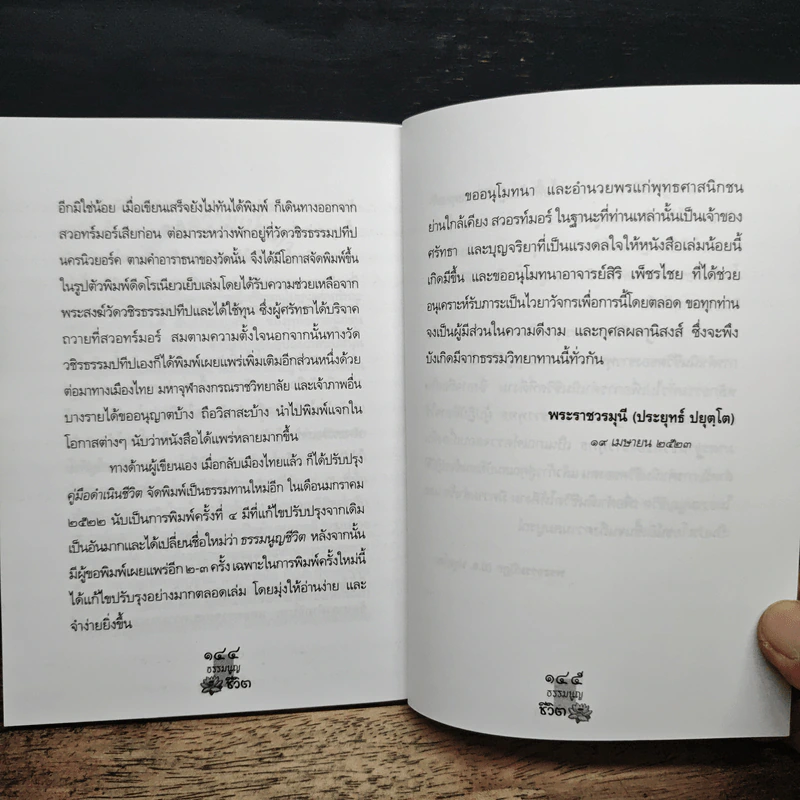 อีกมิใช่น้อย เมื่อเขียนเสร็จยังไม่ทันได้พิมพ์ ก็เดินทางออกจาก
สวอทร์มอร์เสียก่อน ต่อมาระหว่างพักอยู่ที่วัดวชิรธรรมปทีป
นครนิวยอร์ค ตามคำอาราธนาของวัดนั้น จึงได้มีโอกาสจัดพิมพ์ขึ้น
ในรูปตัวพิมพ์ดีดโรเนียวเย็บเล่มโดยได้รับความช่วยเหลือจาก
พระสงฆ์วัดวชิรธรรมปทีปและได้ใช้ทุน ซึ่งผู้ศรัทธาได้บริจาค
ถวายที่สวอทร์มอร์ สมตามความตั้งใจนอกจากนั้นทางวัด
วชิรธรรมปทีปเองก็ได้พิมพ์เผยแพร่เพิ่มเติมอีกส่วนหนึ่งด้วย
ต่อมาทางเมืองไทย มหาจุฬาลงกรณราชวิทยาลัย และเจ้าภาพอื่น
บางรายได้ขออนุญาตบ้าง ถือวิสาสะบ้าง นำไปพิมพ์แจกใน
โอกาสต่างๆ นับว่าหนังสือได้แพร่หลายมากขึ้น
ทางด้านผู้เขียนเอง เมื่อกลับเมืองไทยแล้ว ก็ได้ปรับปรุง
คู่มือดำเนินชีวิต จัดพิมพ์เป็นธรรมทานใหม่อีก ในเดือนมกราคม
๒๕๒๒ นับเป็นการพิมพ์ครั้งที่ ๔ มีที่แก้ไขปรับปรุงจากเดิม
เป็นอันมากและได้เปลี่ยนชื่อใหม่ว่า ธรรมนูญชีวิต หลังจากนั้น
มีผู้ขอพิมพ์เผยแพร่อีก ๒-๓ ครั้ง เฉพาะในการพิมพ์ครั้งใหม่นี้
ได้แก้ไขปรับปรุงอย่างมากตลอดเล่ม โดยมุ่งให้อ่านง่าย และ
จำง่ายยิ่งขึ้น
๑๔๔
ธรรมนูญ
ชีวิต
ขออนุโมทนา และอำนวยพรแก่พุทธศาสนิกชน
ย่านใกล้เคียง สวอรท์มอร์ ในฐานะที่ท่านเหล่านั้นเป็นเจ้าของ
ศรัทธา และบุญจริยาที่เป็นแรงดลใจให้หนังสือเล่มน้อยนี้
เกิดมีขึ้น และขออนุโมทนาอาจารย์สิริ เพ็ชรไชย ที่ได้ช่วย
อนุเคราะห์รับภาระเป็นไวยาวัจกรเพื่อการนี้โดยตลอด ขอทุกท่าน
จงเป็นผู้มีส่วนในความดีงาม และกุศลผลานิสงส์ ซึ่งจะพึง
บังเกิดมีจากธรรมวิทยาทานนี้ทั่วกัน
พระราชวรมุนี (ประยุทธ์ ปยุตฺโต)
๑๙ เมษายน ๒๕๒๓
๑๔๕
ธรรมนูญ
ชีวิต